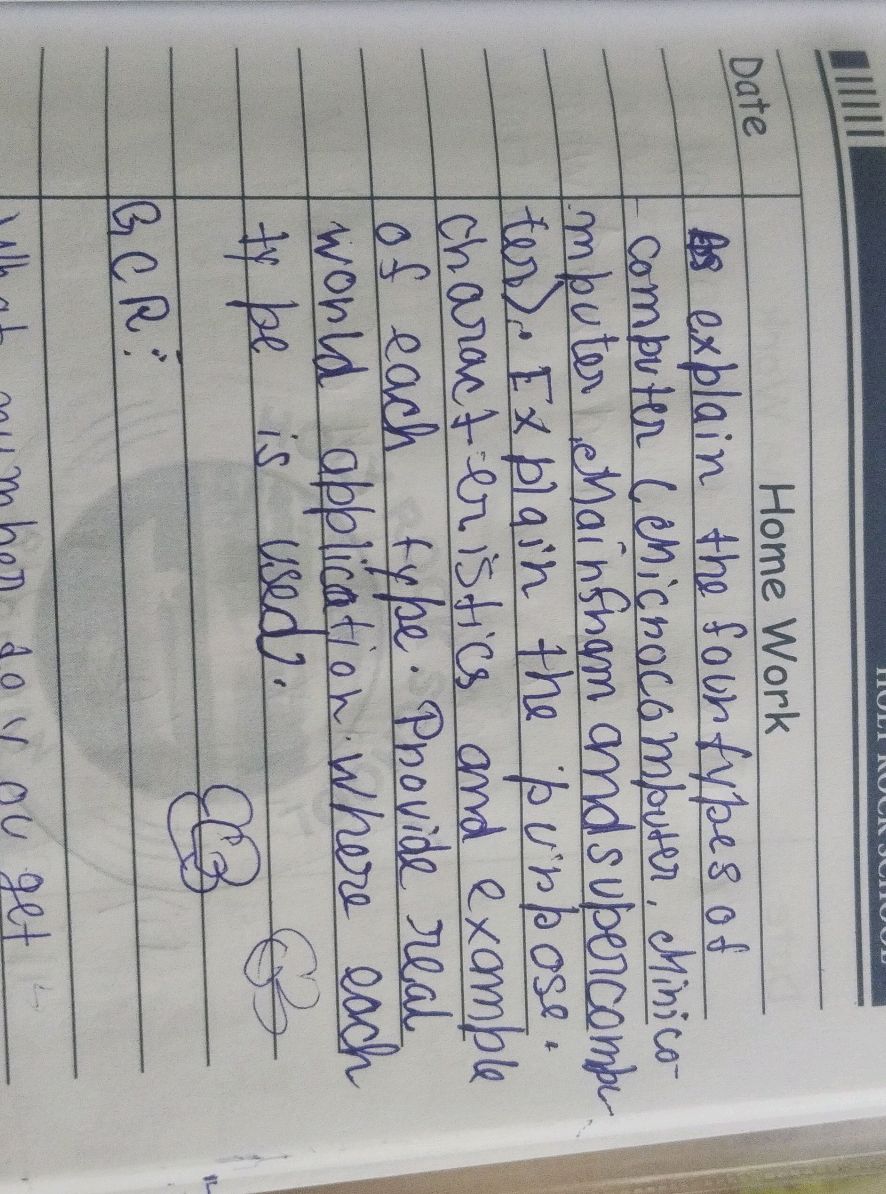 HOLY ROCK SCHOOL
Home Work
Date
explain the four types of
computer (Microcomputer, Minico-
mputer, Mainfram and supercompu
ter). Explain the purpose.
charact-eristics and example
of each type. Provide real
world application where each
type is used?.
G C R:
What number do you get